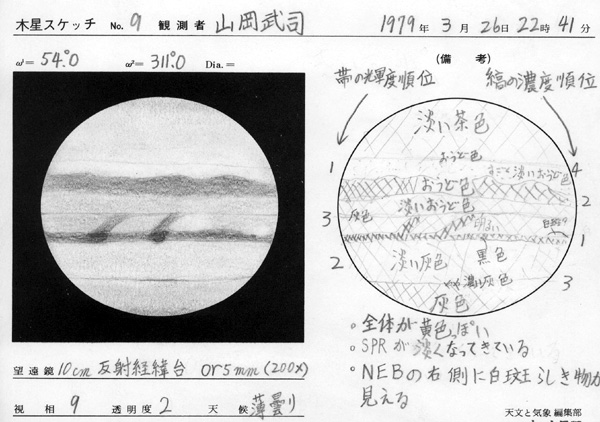 木星スケッチ No. 9 観測者 山岡武司 1979年 3月 26日 22時 41分
ω¹= 54.°0 ω²= 311.°0 Dia.=
(備 考)
帯の輝度順位 縞の濃度順位
淡い茶色
おうど色
1 すごく淡いおうど色 4
おうど色 2
淡いおうど色
3 灰色 明るい 白斑? 1
2 淡い灰色 黒色
やや濃い灰色 3
灰色
○全体が黄色っぽい
○SPRが淡くなってきている
○NEBの右側に白斑らしき物が
見える
望遠鏡 10cm 反射経緯台 Or5mm (200×)
視相 9 透明度 2 天候 薄曇り
天文と気象 編集部